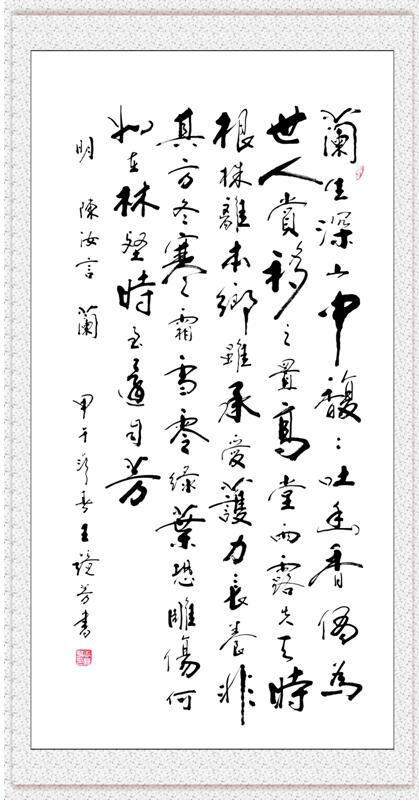 蘭生深山中馥〻吐幽香偶為
世人賞移之置高堂雨露失天時
根株離本鄉雖承愛護力長養非
其方冬寒霜雪零綠葉恐雕傷何
如在林壑時至還自芳
明 陳汝言 蘭 甲午新春王芳書